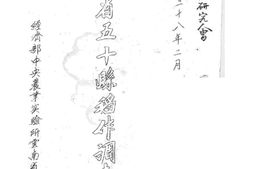 研究會
二十八年二月
省五十縣稻作調
經濟部中央農業實驗所雲南省